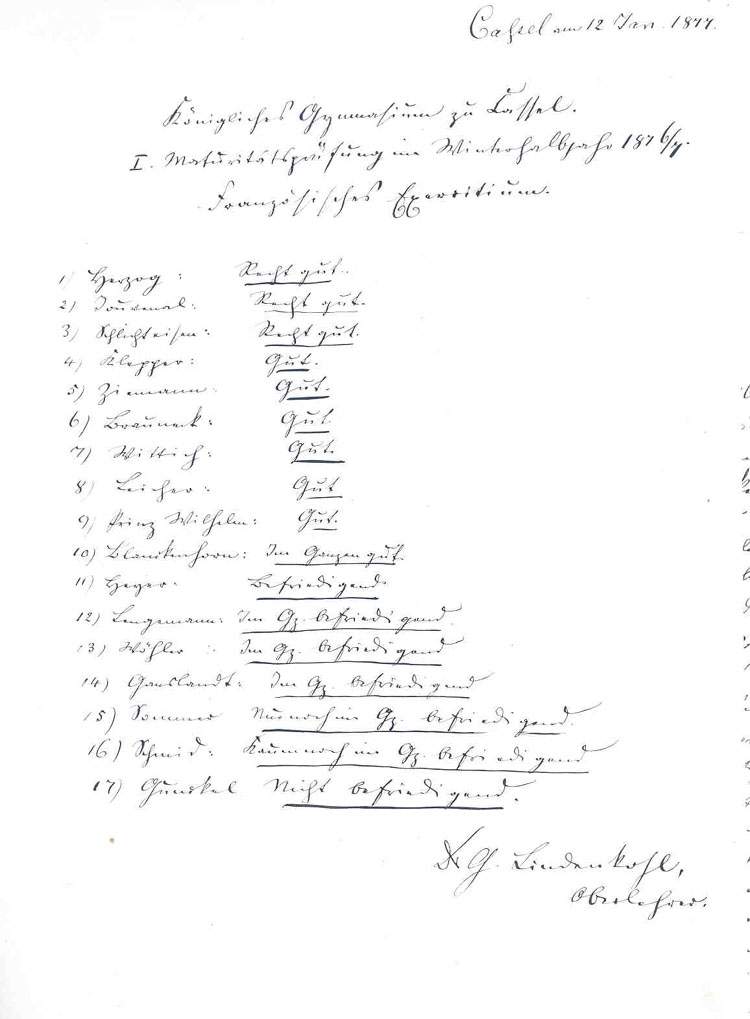 Cassel am 12 Jan. 1877.
Königliches Gymnasium zu Cassel.
I. Maturitätsprüfung im Winterhalbjahr 1876/7.
Französisches Exercitium.
1) Herzog: Recht gut.
2) Jouvenal: Recht gut.
3) Schlichteisen: Recht gut.
4) Klepper: Gut.
5) Ziemann: Gut.
6) Brauneck: Gut
7) Wittich: Gut.
8) Leicher: Gut
9) Prinz Wilhelm: Gut.
10) Blanckenhorn: Im Ganzen gut.
11) Heyer: Befriedigend.
12) Lengemann: Im Gz. befriedigend.
13) Wöhler: Im Gz. befriedigend
14) Ganslandt: Im Gz. befriedigend
15) Sommer Nur noch im Gz. befriedigend.
16) Schmid: Kaum noch im Gz. befriedigend
17) Gunckel Nicht befriedigend.
Dr G. Lindenkohl,
Oberlehrer.